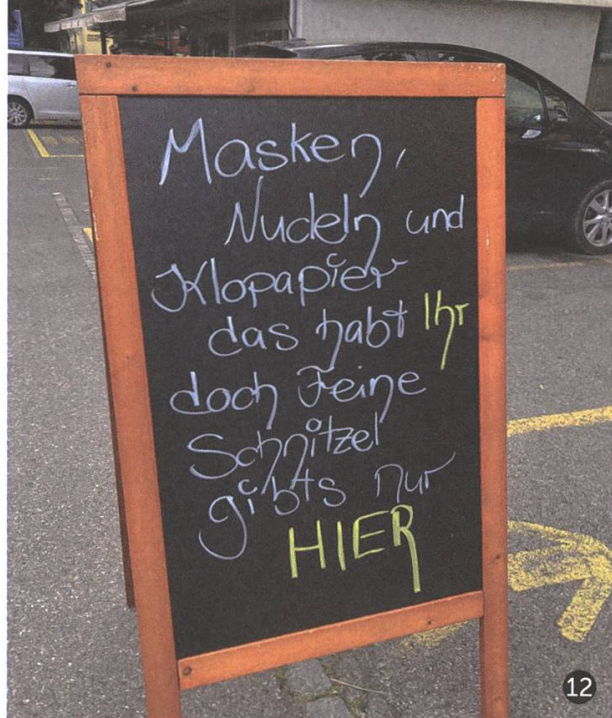 Masken,
Nudeln und
Klopapier
das habt Ihr
doch Feine
Schnitzel
gibts nur
HIER
12